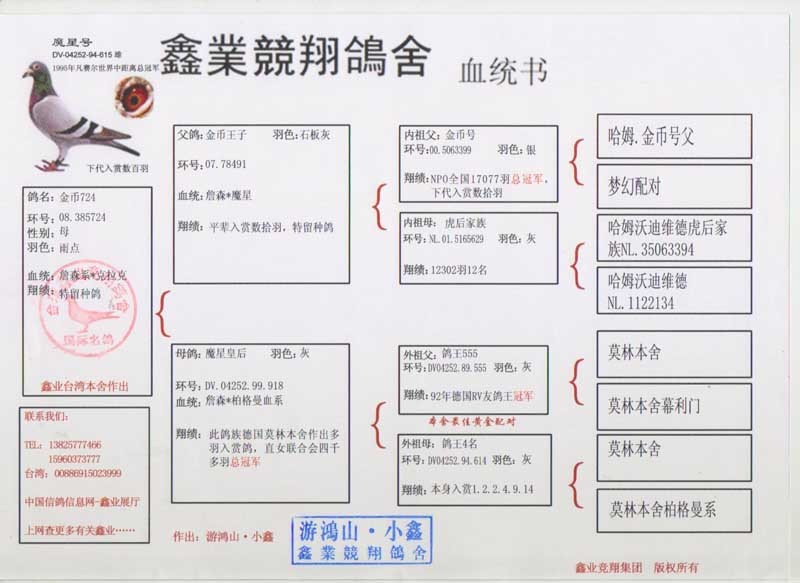 魔星号
DV-04252-94-615 雄
1995年凡赛尔世界中距离总冠军
下代入赏数百羽
鑫業競翔鴿舍
血统书
鸽名：金币724
环号：08.385724
性别：母
羽色：雨点
血统：詹森系*克拉克
翔绩：特留种鸽
国际名鸽
鑫业台湾本舍作出
联系我们：
TEL：13825777466
15960373777
台湾：00886915023999
中国信鸽信息网-鑫业展厅
上网查更多有关鑫业……
父鸽：金币王子 羽色：石板灰
环号：07.78491
血统：詹森*魔星
翔绩：平辈入赏数拾羽，特留种鸽
母鸽：魔星皇后 羽色：灰
环号：DV.04252.99.918
血统：詹森*柏格曼血系
翔绩：此鸽族德国莫林本舍作出多
羽入赏鸽，直女联合会四千
多羽总冠军
作出：游鸿山·小鑫
内祖父：金币号
环号：00.5063399 羽色：银
翔绩：NPO全国17077羽总冠军，
下代入赏数拾羽
内祖母：虎后家族
环号：NL.01.5165629 羽色：灰
翔绩：12302羽12名
外祖父：鸽王555
环号：DV04252.89.555 羽色：灰
翔绩：92年德国RV友鸽王冠军
本舍最佳黄金配对
外祖母：鸽王4名
环号：DV04252.94.614 羽色：灰
翔绩：本身入赏1.2.2.4.9.14
游鴻山·小鑫
鑫業競翔鴿舍
哈姆.金币号父
梦幻配对
哈姆沃迪维德虎后家
族NL.35063394
哈姆沃迪维德
NL.1122134
莫林本舍
莫林本舍幕利门
莫林本舍
莫林本舍柏格曼系
鑫业竞翔集团 版权所有